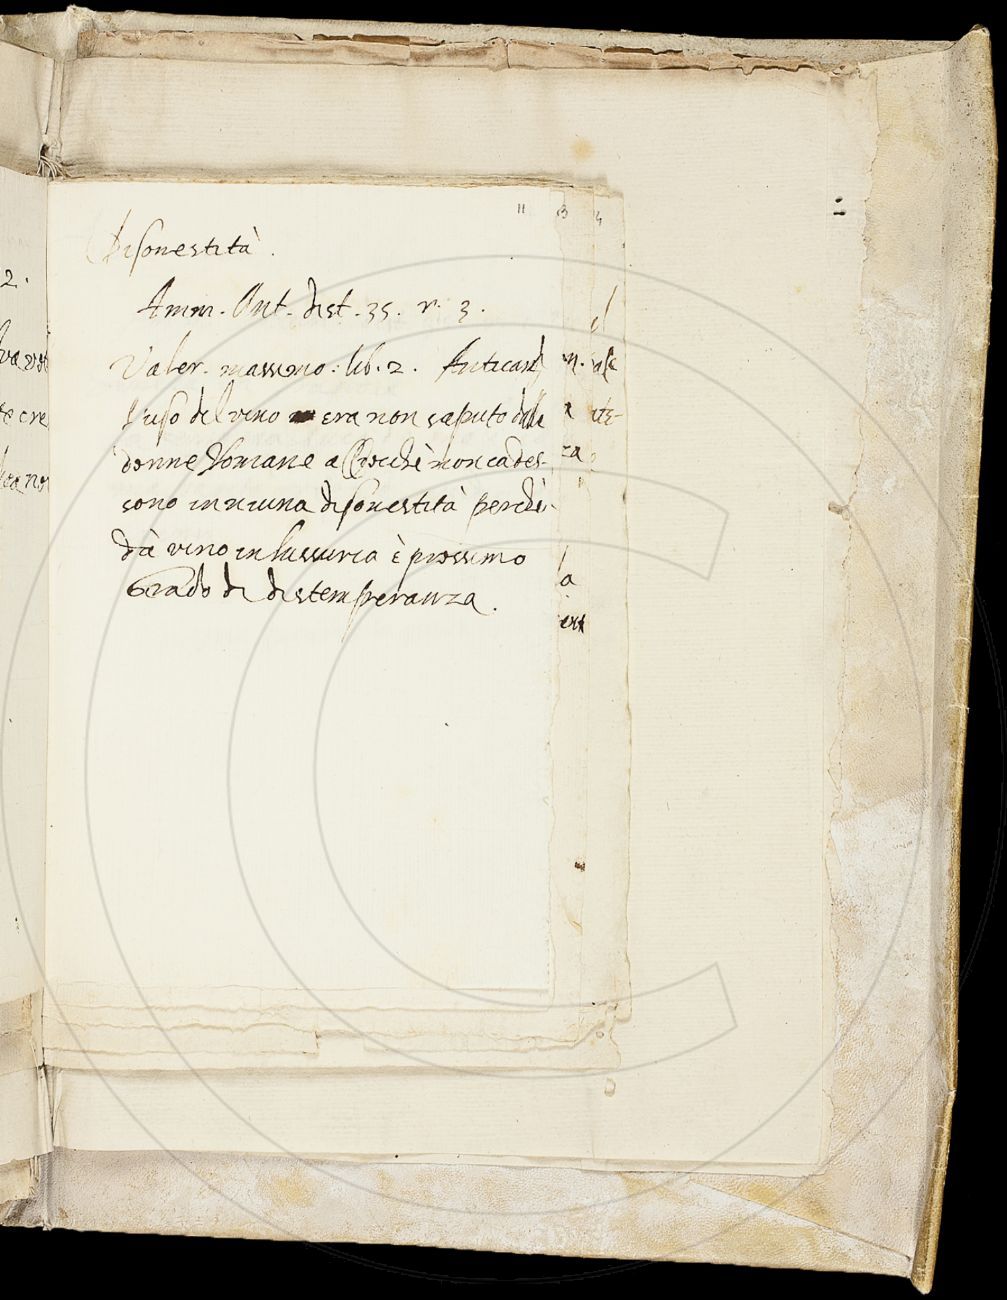 11 13 4
Disonestità.
Amm. Ant. dist. 35. r. 3.
2.
Valer. massimo. lib. 2. Anticam
l'uso del vino era non saputo dalle
donne Romane acciocchè non cades-
sono in niuna disonestità perchè
da vino in lussuria è prossimo
Grado di distemperanza.